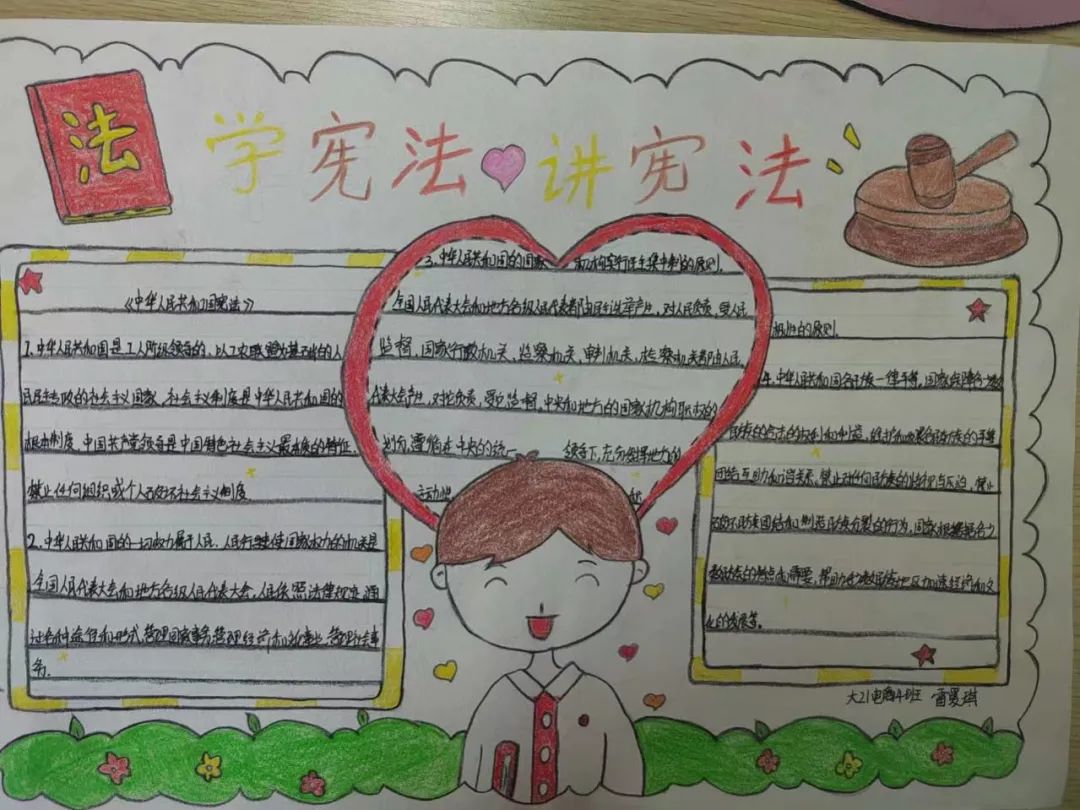 法
学宪法讲宪法
《中华人民共和国宪法》
1.中华人民共和国是工人阶级领导的,以工农联盟为基础的人
民民主专政的社会主义国家,社会主义制度是中华人民共和国的
根本制度,中国共产党领导是中国特色社会主义最本质的特征.
禁止任何组织或个人破坏社会主义制度
2.中华人民共和国的一切权力属于人民.人民行使国家权力的机关是
全国人民代表大会和地方各级人民代表大会,人民依照法律规定,通
过各种途径和形式,管理国家事务,管理经济和文化事业,管理社会事
务.
3.中华人民共和国的国家机构实行民主集中制的原则.
全国人民代表大会和地方各级人民代表都由民主选举产生,对人民负责,受人民
监督,国家行政机关、监察机关、审判机关、检察机关都由人民
代表大会产生,对它负责,受它监督,中央和地方的国家机构职权的
划分,遵循在中央的统一领导下,充分发挥地方的
主动性
极性的原则.
4.中华人民共和国各民族一律平等,国家保障各
民族的合法的权利和利益,维护和发展各民族的平等
团结互助和谐关系,禁止对任何民族的歧视与压迫,禁止
破坏民族团结和制造民族分裂的行为,国家根据各少
数民族的特点和需要,帮助少数民族地区加速经济和文
化的发展等。
大21电商4班